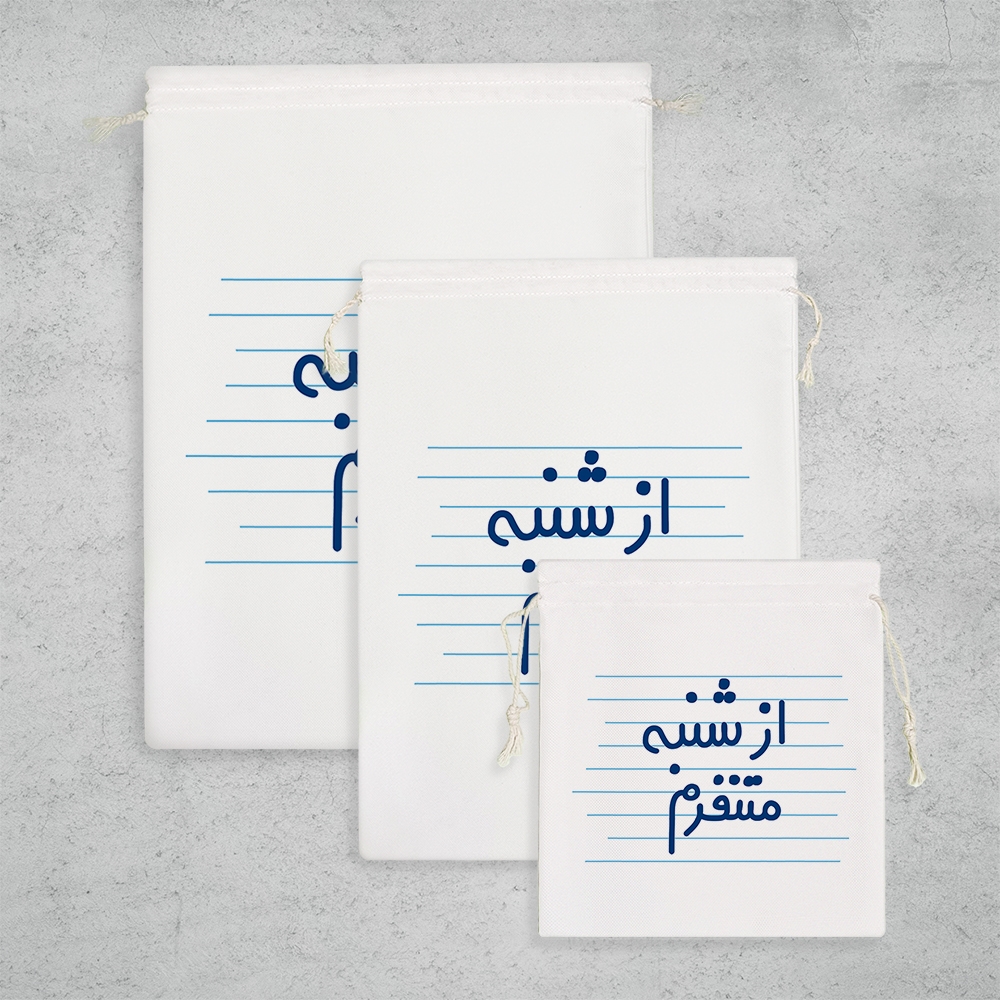 از شنبه
از شنبه
متنفرم